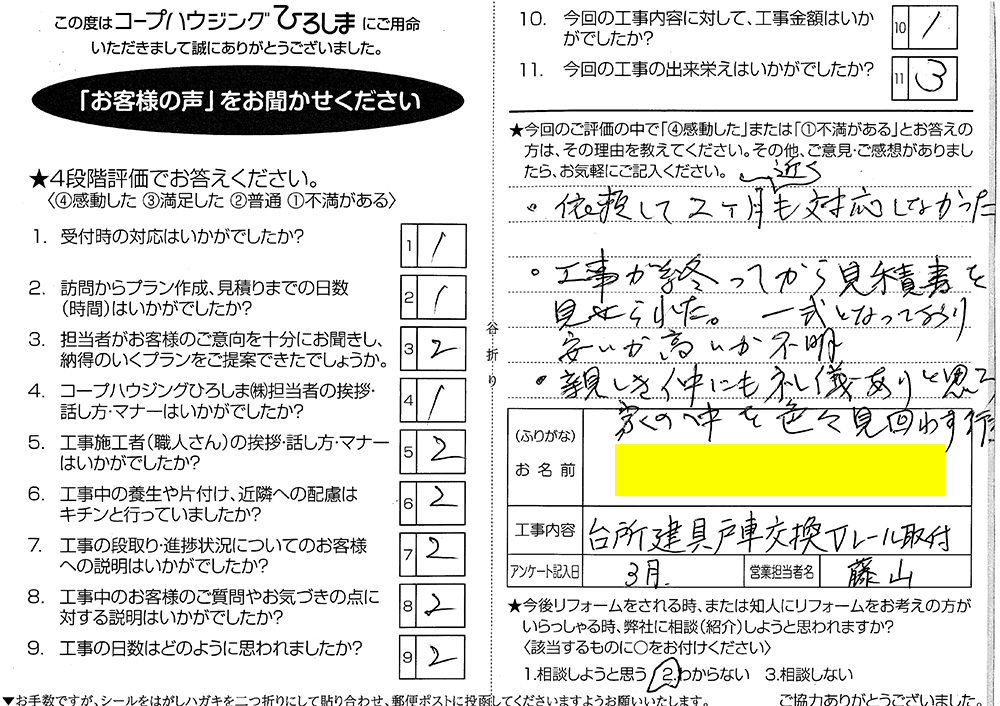 この度はコープハウジングひろしまにご用命
いただきまして誠にありがとうございました。
「お客様の声」をお聞かせください
★4段階評価でお答えください。
〈④感動した ③満足した ②普通 ①不満がある〉
1. 受付時の対応はいかがでしたか？
1 1
2. 訪問からプラン作成、見積りまでの日数
（時間）はいかがでしたか？
2 1
3. 担当者がお客様のご意向を十分にお聞きし、
納得のいくプランをご提案できたでしょうか。
3 2
4. コープハウジングひろしま㈱担当者の挨拶・
話し方・マナーはいかがでしたか？
4 1
5. 工事施工者（職人さん）の挨拶・話し方・マナー
はいかがでしたか？
5 2
6. 工事中の養生や片付け、近隣への配慮は
キチンと行っていましたか？
6 2
7. 工事の段取り・進捗状況についてのお客様
への説明はいかがでしたか？
7 2
8. 工事中のお客様のご質問やお気づきの点に
対する説明はいかがでしたか？
8 2
9. 工事の日数はどのように思われましたか？
9 2
▼お手数ですが、シールをはがしハガキを二つ折りにして貼り合わせ、郵便ポストに投函してくださいますようお願いいたします。
谷折り
10. 今回の工事内容に対して、工事金額はいか
がでしたか？
10 1
11. 今回の工事の出来栄えはいかがでしたか？
11 3
★今回のご評価の中で「④感動した」または「①不満がある」とお答えの
方は、その理由を教えてください。その他、ご意見・ご感想がありまし
たら、お気軽にご記入ください。
近く
・依頼して2ヶ月も対応しなかった
・工事が終ってから見積書を
見せられた。一式となっており
安いか高いか不明
・親しき仲にも礼儀ありと思う
家の中を色々見回わす行
（ふりがな）
お名前
工事内容 台所建具戸車交換Vレール取付
アンケート記入日 3月. 営業担当者名 藤山
★今後リフォームをされる時、または知人にリフォームをお考えの方が
いらっしゃる時、弊社に相談（紹介）しようと思われますか？
〈該当するものに○をお付けください〉
1.相談しようと思う 2.わからない 3.相談しない
ご協力ありがとうございました。